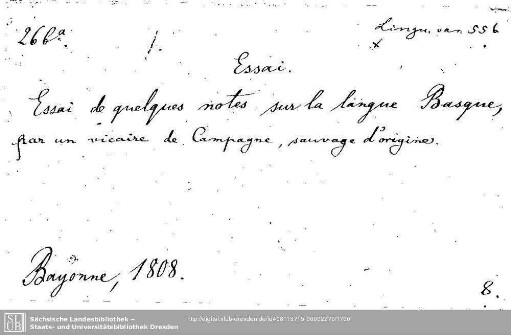 266a. 1. Lingu. van 556
x
Essai.
Essai de quelques notes sur la langue Basque,
par un vicaire de Campagne, sauvage d'origine.
Bayonne, 1808.
8.
Sächsische Landesbibliothek –
Staats- und Universitätsbibliothek Dresden